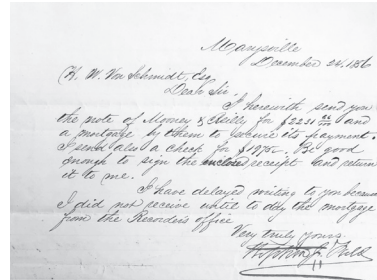 Marysville
December 24. 1856
A. W. Von Schmidt, Esq
Dear Sir.
I herewith send you
the note of Money & Reilly for $2231 and
a mortgage by them to secure its payment.
I send also a check for $1975. Be good
enough to sign the enclosed receipt and return
it to me.
I have delayed writing to you because
I did not receive until to day the mortgage
from the Recorder's office
Very truly yours.
Field